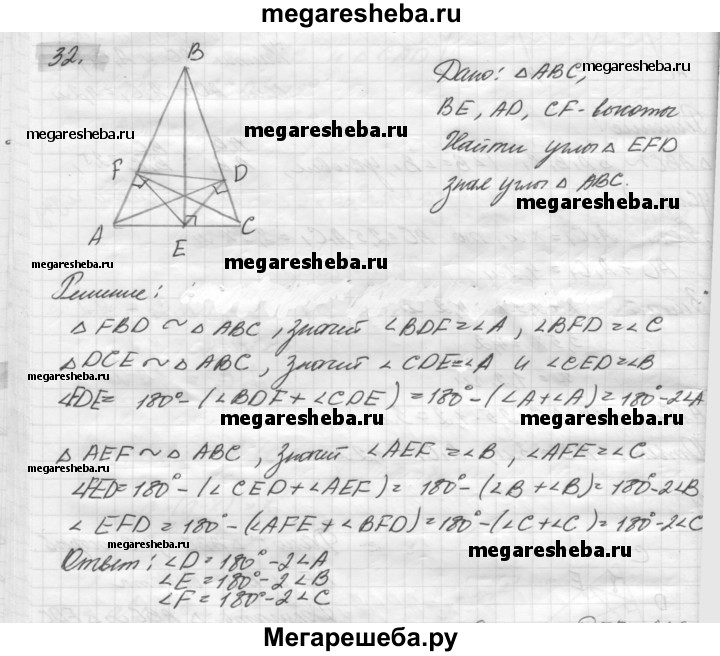 megaresheba.ru
32.
B
F
D
A
E
C
Дано: △ABC,
BE, AD, CF - высоты
Найти углы △ EFD
зная углы △ ABC.
megaresheba.ru
megaresheba.ru
megaresheba.ru
megaresheba.ru
megaresheba.ru
megaresheba.ru
Решение:
△ FBD ~ △ ABC, значит ∠BDF=∠A, ∠BFD=∠C
△ DCE ~ △ ABC, значит ∠CDE=∠A и ∠CED=∠B
∠FDE= 180°-(∠BDF+∠CDE)=180°-(∠A+∠A)=180°-2∠A
megaresheba.ru
megaresheba.ru
megaresheba.ru
△ AEF ~ △ ABC, значит ∠AEF=∠B, ∠AFE=∠C
∠FED=180°-(∠CED+∠AEF)= 180°-(∠B+∠B)=180°-2∠B
∠ EFD = 180°-(∠AFE+∠BFD)=180°-(∠C+∠C)=180°-2∠C
megaresheba.ru
megaresheba.ru
megaresheba.ru
Ответ: ∠D=180°-2∠A
∠E=180°-2∠B
∠F=180°-2∠C
megaresheba.ru
megaresheba.ru
Мегарешеба.ру